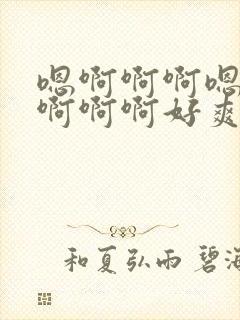 嗯啊啊啊嗯
啊啊啊好爽
和夏弘雨 碧海